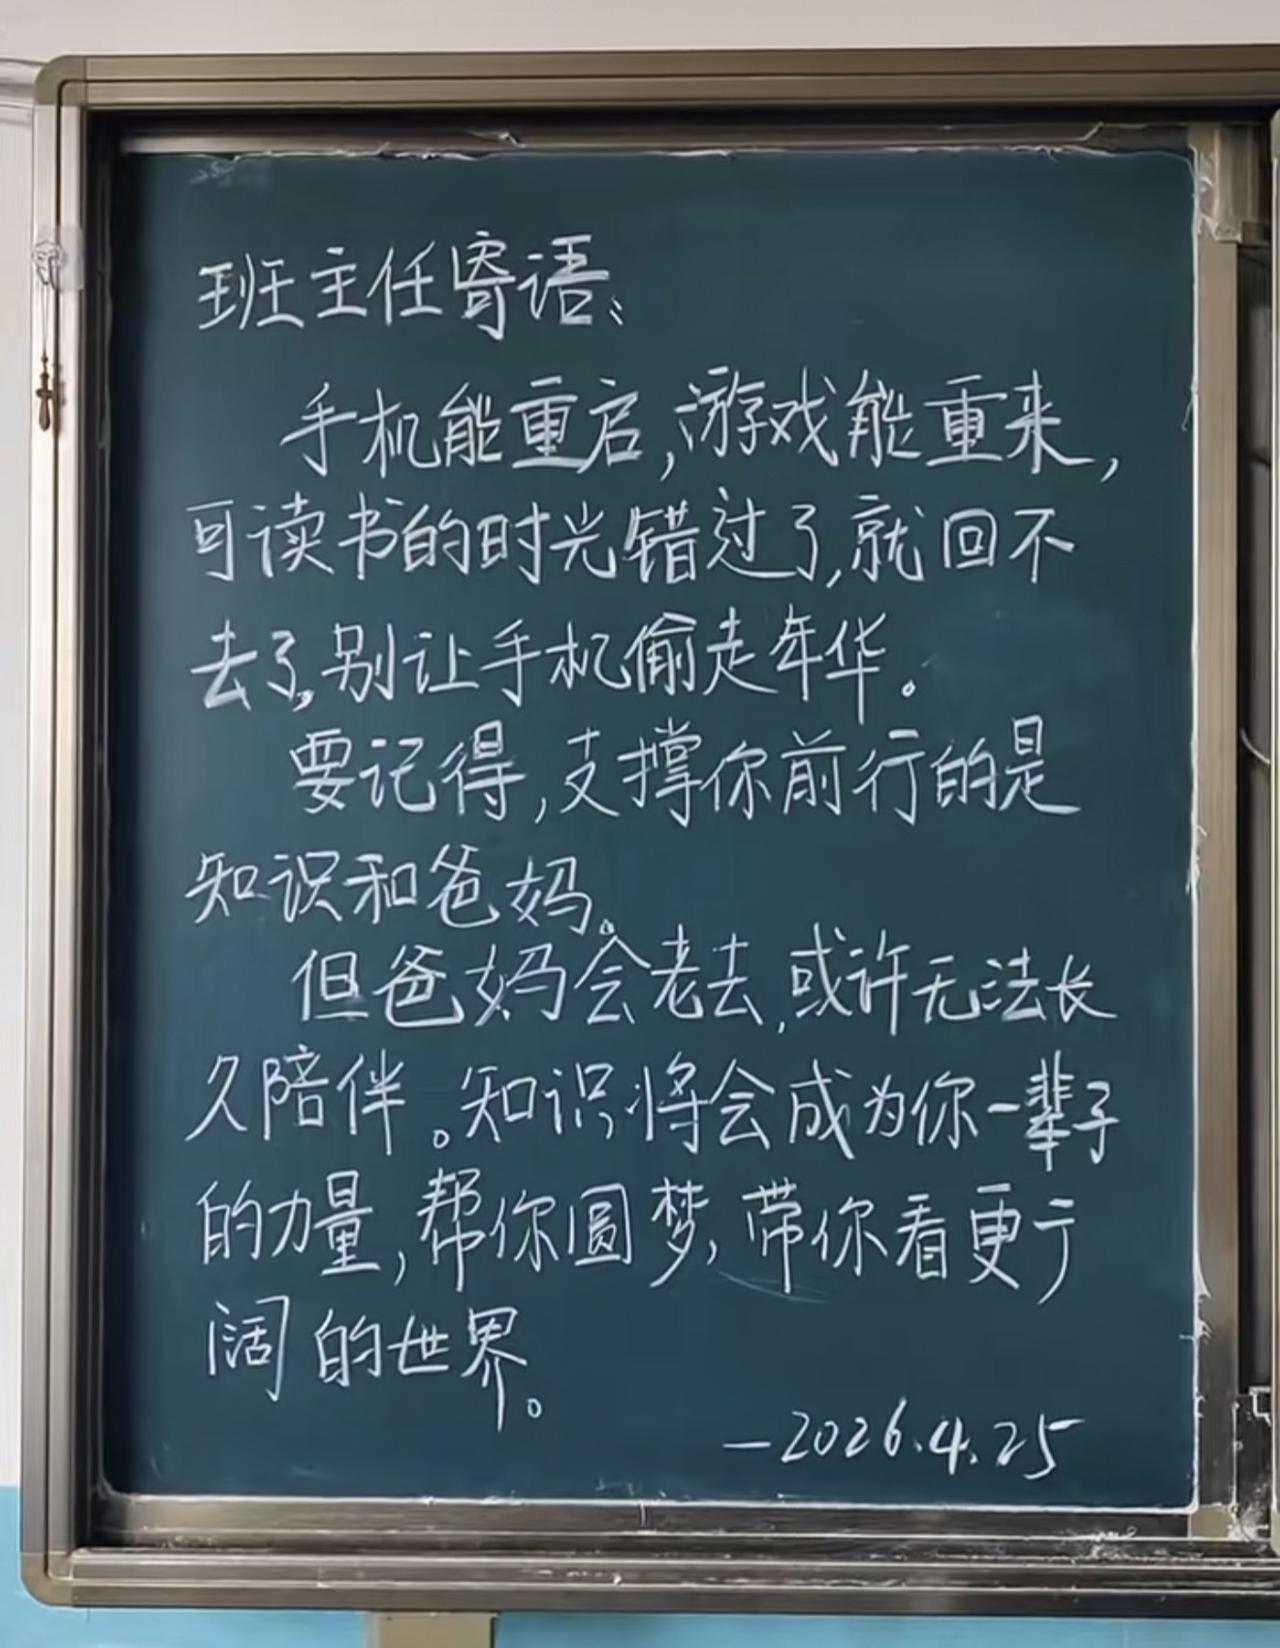 班主任寄语：
手机能重启，游戏能重来，
可读书的时光错过了，就回不
去了，别让手机偷走年华。
要记得，支撑你前行的是
知识和爸妈。
但爸妈会老去，或许无法长
久陪伴。知识将会成为你一辈子
的力量，帮你圆梦，带你看更广
阔的世界。
—2026.4.25